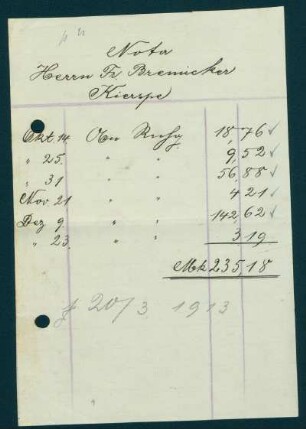 Nota
Herrn Fr Brenscker
Kierspe
Okt. 14. An Rchg 18,76 ✓
" 25. " " 9,52 ✓
" 31 " " 56,88 ✓
Nov 21 " " 4 21 ✓
Dez 9 " " 142,62 ✓
" 23. " " 3 19
Mk 235,18
20/3 1913